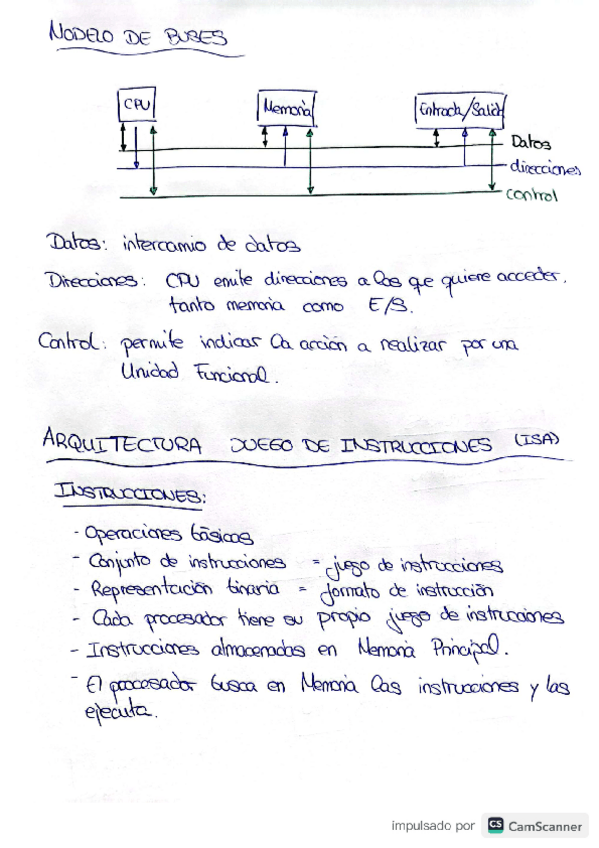 MODELO DE BUSES
CPU
Memoria
Entrada/Salida
Datos
direcciones
control
Datos: intercamio de datos
Direcciones: CPU emite direcciones a las que quiere acceder,
tanto memoria como E/S.
Control: permite indicar la acción a realizar por una
Unidad Funcional.
ARQUITECTURA JUEGO DE INSTRUCCIONES (ISA)
INSTRUCCIONES:
- Operaciones básicas
- Conjunto de instrucciones = juego de instrucciones
- Representación binaria = formato de instrucción
- Cada procesador tiene su propio juego de instrucciones
- Instrucciones almacenadas en Memoria Principal.
- El procesador busca en Memoria las instrucciones y las
ejecuta.
impulsado por CS CamScanner